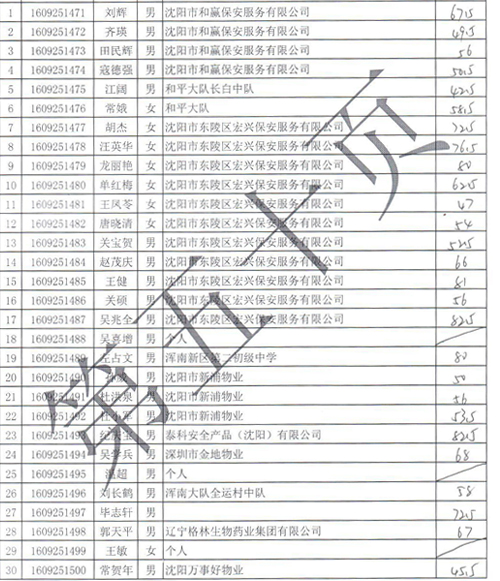 1 1609251471 刘辉 男 沈阳市和赢保安服务有限公司 67.5
2 1609251472 齐瑛 男 沈阳市和赢保安服务有限公司 49.5
3 1609251473 田民辉 男 沈阳市和赢保安服务有限公司 56
4 1609251474 寇德强 男 沈阳市和赢保安服务有限公司 50.5
5 1609251475 江阔 男 和平大队长白中队 42.5
6 1609251476 常娥 女 和平大队 58.5
7 1609251477 胡杰 女 沈阳市东陵区宏兴保安服务有限公司 72.5
8 1609251478 汪英华 女 沈阳市东陵区宏兴保安服务有限公司 76.5
9 1609251479 龙丽艳 女 沈阳市东陵区宏兴保安服务有限公司 80
10 1609251480 单红梅 女 沈阳市东陵区宏兴保安服务有限公司 62.5
11 1609251481 王凤苓 女 沈阳市东陵区宏兴保安服务有限公司 47
12 1609251482 唐晓清 女 沈阳市东陵区宏兴保安服务有限公司 54
13 1609251483 关宝贺 男 沈阳市东陵区宏兴保安服务有限公司 52.5
14 1609251484 赵茂庆 男 沈阳市东陵区宏兴保安服务有限公司 66
15 1609251485 王健 男 沈阳市东陵区宏兴保安服务有限公司 81
16 1609251486 关硕 男 沈阳市东陵区宏兴保安服务有限公司 56
17 1609251487 吴兆全 男 沈阳市东陵区宏兴保安服务有限公司 82.5
18 1609251488 吴喜增 男 个人
19 1609251489 王占文 男 浑南新区第二初级中学 80
20 1609251490 男 沈阳市新浦物业 50
21 1609251491 杜洪泉 男 沈阳市新浦物业 56
22 1609251492 男 沈阳市新浦物业 53.5
23 1609251493 男 泰科安全产品（沈阳）有限公司 82.5
24 1609251494 吴学兵 男 深圳市金地物业 68
25 1609251495 温超 男 个人
26 1609251496 刘长鹤 男 浑南大队全运村中队 58
27 1609251497 毕志轩 男 72.5
28 1609251498 郭天平 男 辽宁格林生物药业集团有限公司 67
29 1609251499 王敏 女 个人
30 1609251500 常贺年 男 沈阳万事好物业 45.5
第五十页